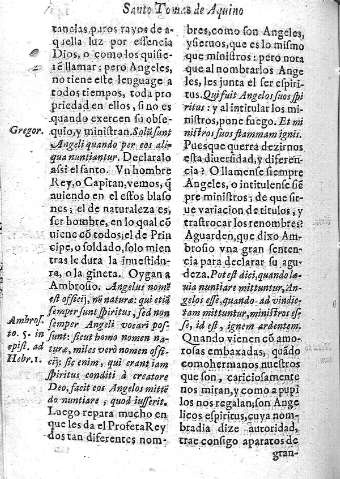 Santo Tomas de Aquino
tanelas, paros rayos de a-
quella luz por essencia
Dios, o como los quisie-
rẽ llamar; pero Angeles,
no tiene este lenguage a
todos tiempos, toda pro
priedad en ellos, si no es
quando exercen su obse-
quio, y ministran. Solũ sunt
Angeli quando per eos ali-
qua nuntiantur. Declaralo
assi el santo. Vn hombre
Rey, o Capitan, vemos, q̃
auiendo en el estos blaso-
nes; el de naturaleza es
ser hombre, en lo qual cõ
uiene cõ todos; el de Prin
cipe, o soldado, solo mien
tras le dura la inuestidu-
ra, o la gineta. Oygan a
Ambrosio. Angelus nomẽ
est officij, nõ naturæ: qui etiã
semper sunt spiritus, sed non
semper Angeli vocari pos-
sunt: sicut homo nomen na-
turæ, miles verò nomen offi-
cij: sic enim, qui erant iam
spiritus conditi à creatore
Deo, facit eos Angelos mittẽ
do nuntiare; quod iusserit.
Luego repara mucho en
que les da el Profeta Rey
dos tan diferentes nom-
Gregor.
Ambros-
to. 5. in
epist. ad
Hebr. 1.
bres, como son Angeles,
y sieruos, que es lo mismo
que ministros; pero nota
que al nombrarlos Ange
les, les junta el ser espiri-
tus. Qui fuit Angelos suos spi
ritus: y al intitular los mi
nistros, pone fuego. Et mi
nistros suos flammam ignis.
Pues que querra dezirnos
esta diuersidad, y diferen-
cia? O llamense siempre
Angeles, o intitulense siẽ
pre ministros; de que sir-
ue variacion de titulos, y
trastrocar los renombres?
Aguarden, que dixo Am-
brosio vna gran senten-
cia para declarar su agu-
deza. Potest dici, quando læ-
tia nuntiare mittuntur, An-
gelos esse, quando ad vindic-
tam mittuntur, ministros es-
se, id est, ignem ardentem.
Quando vienen cõ amo-
rosas embaxadas, quãdo
como hermanos nuestros
que son, cariciosamente
nos miran, y como a pupi
los nos regalan, son Ange
licos espiritus, cuya nom-
bradia dize autoridad,
trae consigo aparatos de
gran-